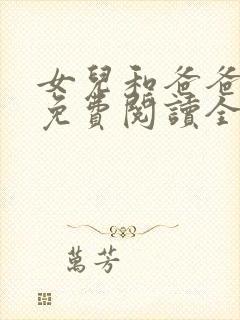 女兒和爸爸
免費閱讀全
萬芳